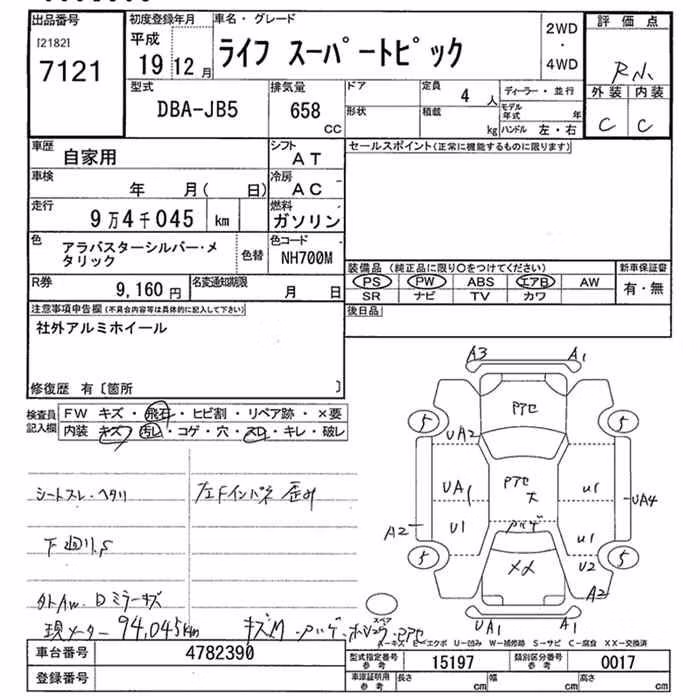 出品番号 初度登録年月 車名・グレード 評価点
[2182] 平成 ライフ スーパートピック 2WD
7121 19 12月 ・ 4WD R N.
型式 排気量 ドア 定員 4人 ディーラー・並行 外装 内装
DBA-JB5 658 CC 形状 積載 kg モデル年式 年 C C
ハンドル 左・右
車歴 自家用 シフト AT セールスポイント(正常に機能するものに限ります)
車検 年 月( 日) 冷房 AC
走行 9万4千045 km 燃料 ガソリン
色 アラバスターシルバー・メタリック 色替 色コード NH700M
装備品 (純正品に限り○をつけてください) 新車保証書
PS PW ABS エアB AW 有・無
SR ナビ TV カワ
R券 9,160円 名変通知期限 月 日
後日品
注意事項申告欄(不具合内容等は具体的に記入して下さい)
社外アルミホイール
修復歴 有〔箇所 〕
検査員記入欄 FW キズ・飛石・ヒビ割・リペア跡・×要
内装 キズ・汚レ・コゲ・穴・スレ・キレ・破レ
A3 A1
5 Pアセ 5
UA2
UA1 Pアセ ス U1 UA4
A2 U1 ハゲ U1
5 U2 5
メメ A2
UA1 A1
シートスレ・ヘタリ 左Fインパネ 歪み
下廻りS
外AW. Dミラーキズ
現メーター 94,045km キズM・ハゲ・ホシュウ・Pアセ
スペア
A-キズ E-エクボ U-凹み W-補修跡 S-サビ C-腐食 XX-交換済
車台番号 4782390 型式指定番号 参考 15197 類別区分番号 参考 0017
登録番号 車庫証明用 参考 長さ cm 幅 cm 高さ cm